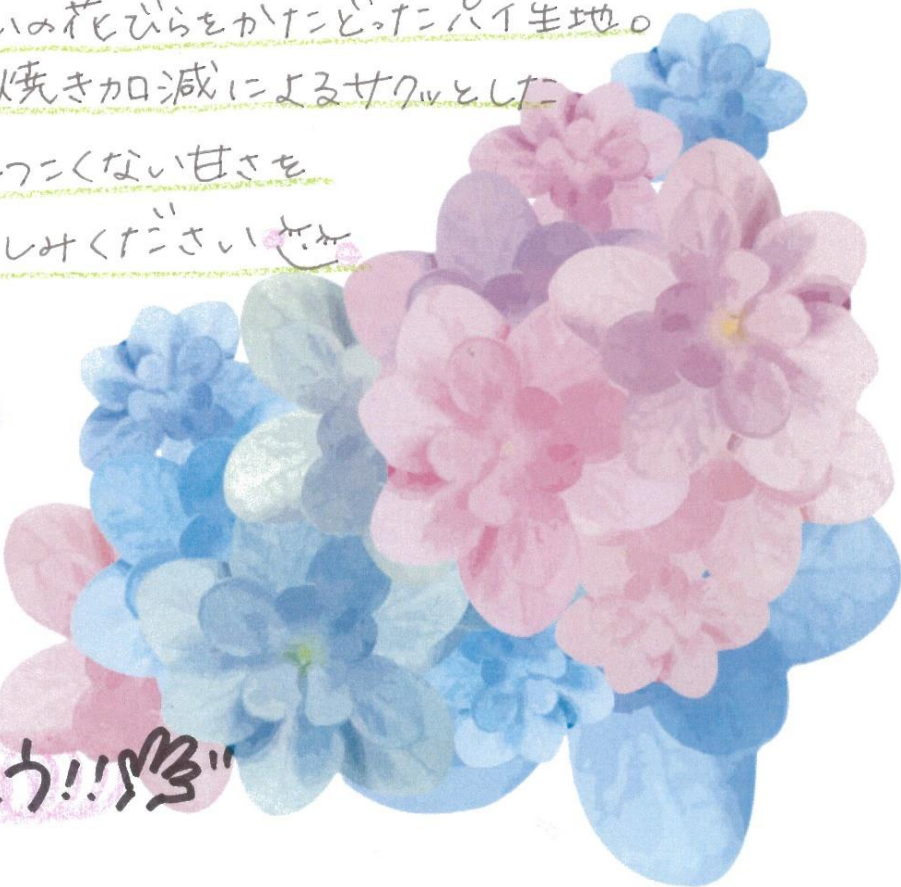 いの花びらをかたどったパイ生地。
焼き加減によるサクッとした
つこくない甘さを
しみください
う!!